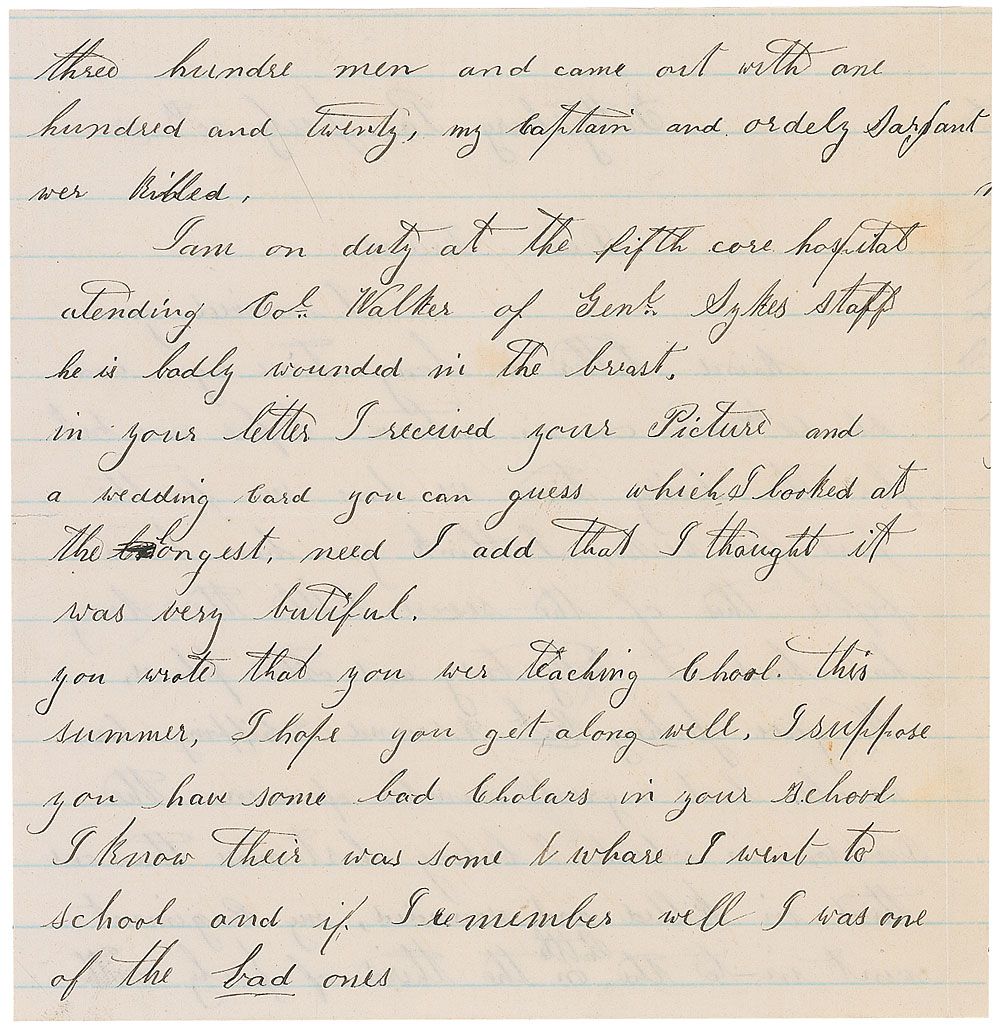 three hundre men and came out with one
hundred and twenty, my Captain and ordely Sarjant
wer killed,
I am on duty at the fifth core hospital
atending Col. Walker of Genl. Sykes staff
he is badly wounded in the breast.
in your letter I received your Picture and
a wedding Card you can guess which I looked at
the longest, need I add that I thought it
was very butiful.
you wrote that you wer teaching Chool. this
summer, I hope you get along well, I suppose
you have some bad Cholars in your school
I know their was some whare I went to
school and if I remember well I was one
of the bad ones